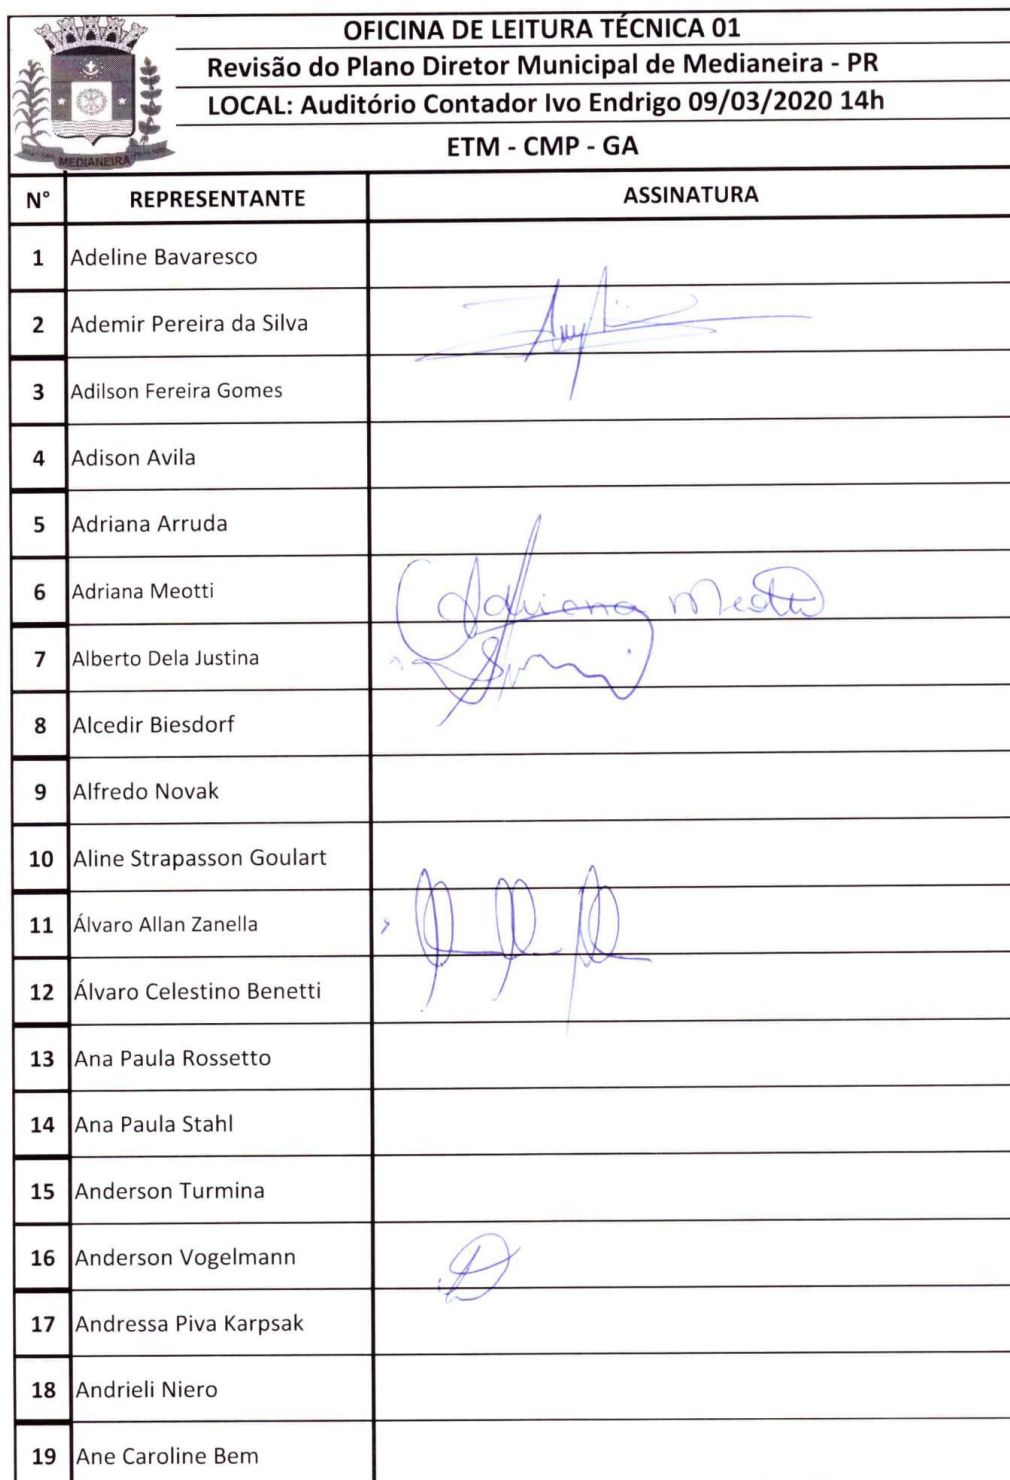 OFICINA DE LEITURA TÉCNICA 01
Revisão do Plano Diretor Municipal de Medianeira - PR
LOCAL: Auditório Contador Ivo Endrigo 09/03/2020 14h
ETM - CMP - GA
MEDIANEIRA
N° REPRESENTANTE ASSINATURA
1 Adeline Bavaresco
2 Ademir Pereira da Silva
3 Adilson Fereira Gomes
4 Adison Avila
5 Adriana Arruda
6 Adriana Meotti Adriana Meotti
7 Alberto Dela Justina
8 Alcedir Biesdorf
9 Alfredo Novak
10 Aline Strapasson Goulart
11 Álvaro Allan Zanella
12 Álvaro Celestino Benetti
13 Ana Paula Rossetto
14 Ana Paula Stahl
15 Anderson Turmina
16 Anderson Vogelmann
17 Andressa Piva Karpsak
18 Andrieli Niero
19 Ane Caroline Bem